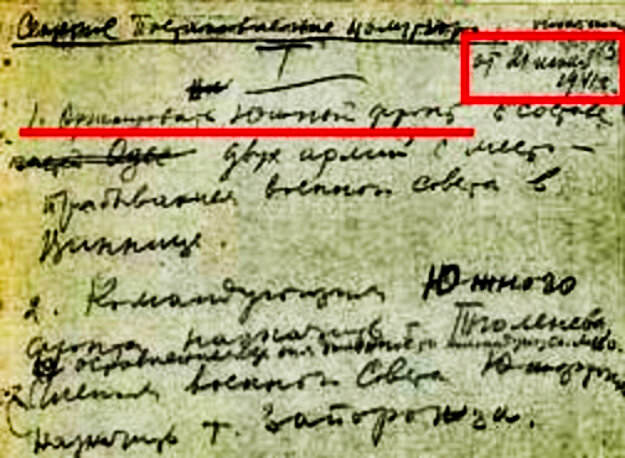 Секретное Постановление
от 21 июня
1941 г.
I
1. Организовать Южный фронт в составе
двух армий с место-
пребыванием военного совета в
Виннице.
2. Командующим Южного
фронта назначить т. Тюленева,
с оставлением за ним
3. Членом военного Совета Южфронта
назначить т. Запорожца.